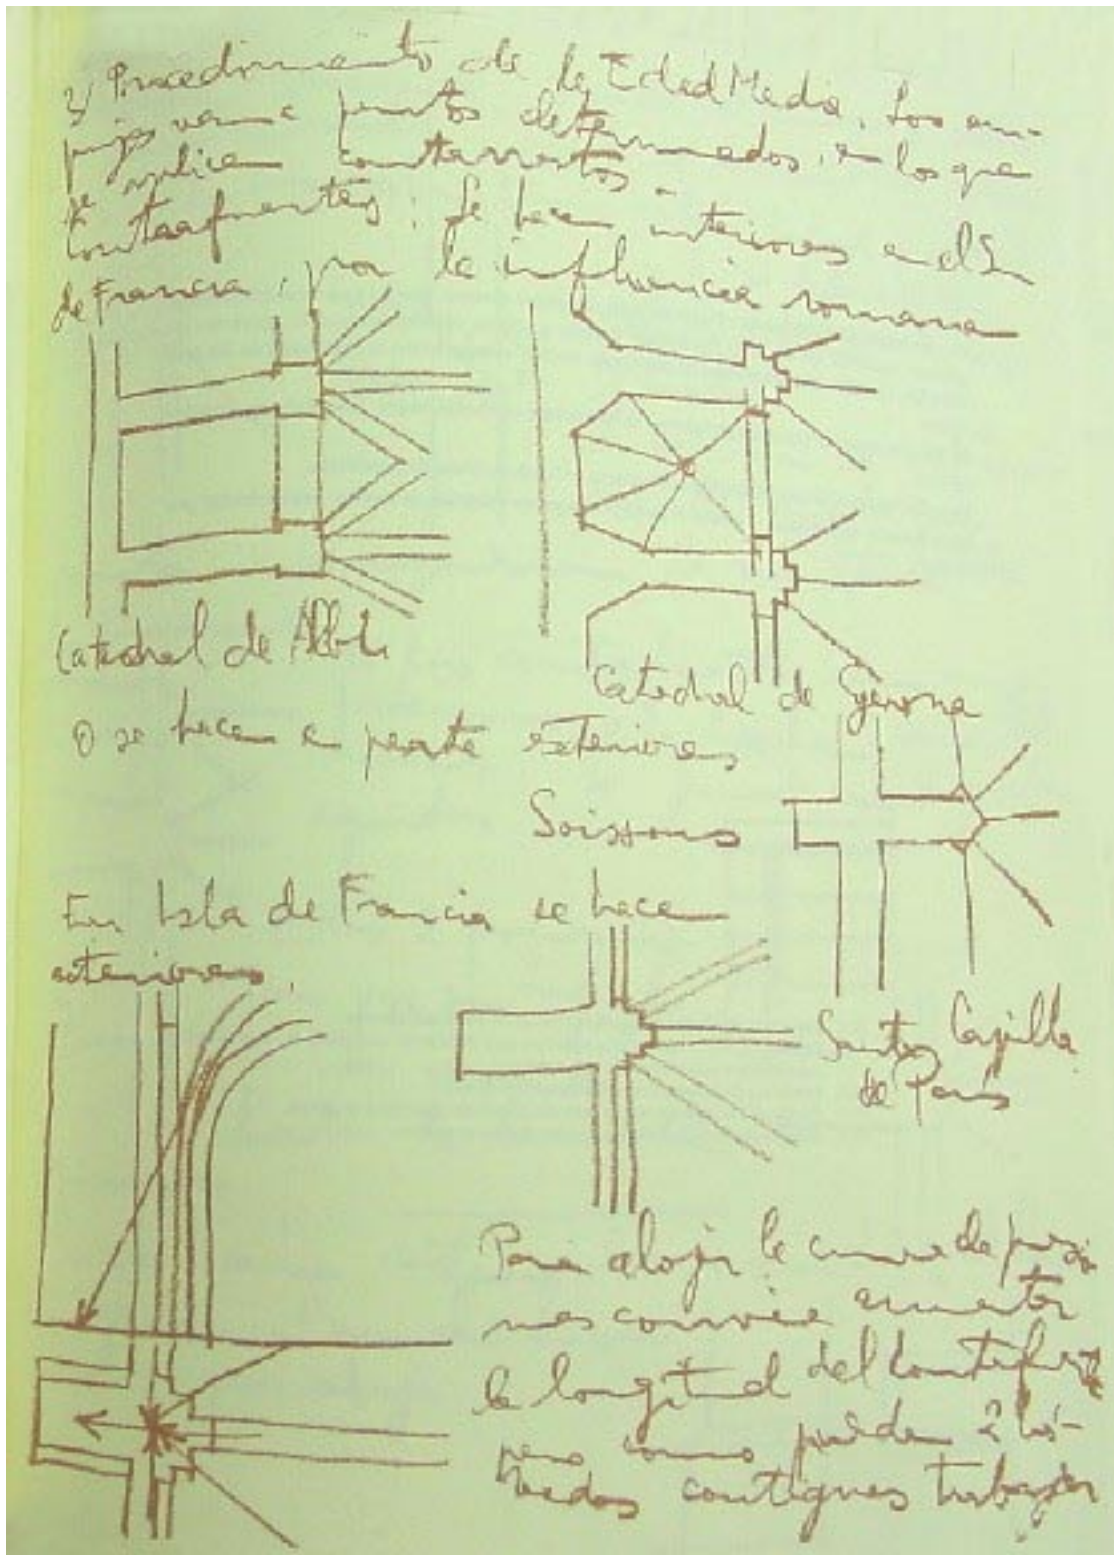 3) Procedimiento de la Edad Media. Los em-
pujes van a puntos determinados, en los que
se aplican contrarrestos.
Contrafuertes: Se hacen interiores en el S
de Francia, por la influencia romana
Catedral de Albi
Catedral de Gerona
O se hacen en parte exteriores
Soissons
En Isla de Francia se hacen
exteriores.
Santa Capilla
de París
Para alojar la curva de presio
nes conviene aumentar
la longitud del contrafuerte
pero como pueden 2 bó-
vedas contiguas trabajar